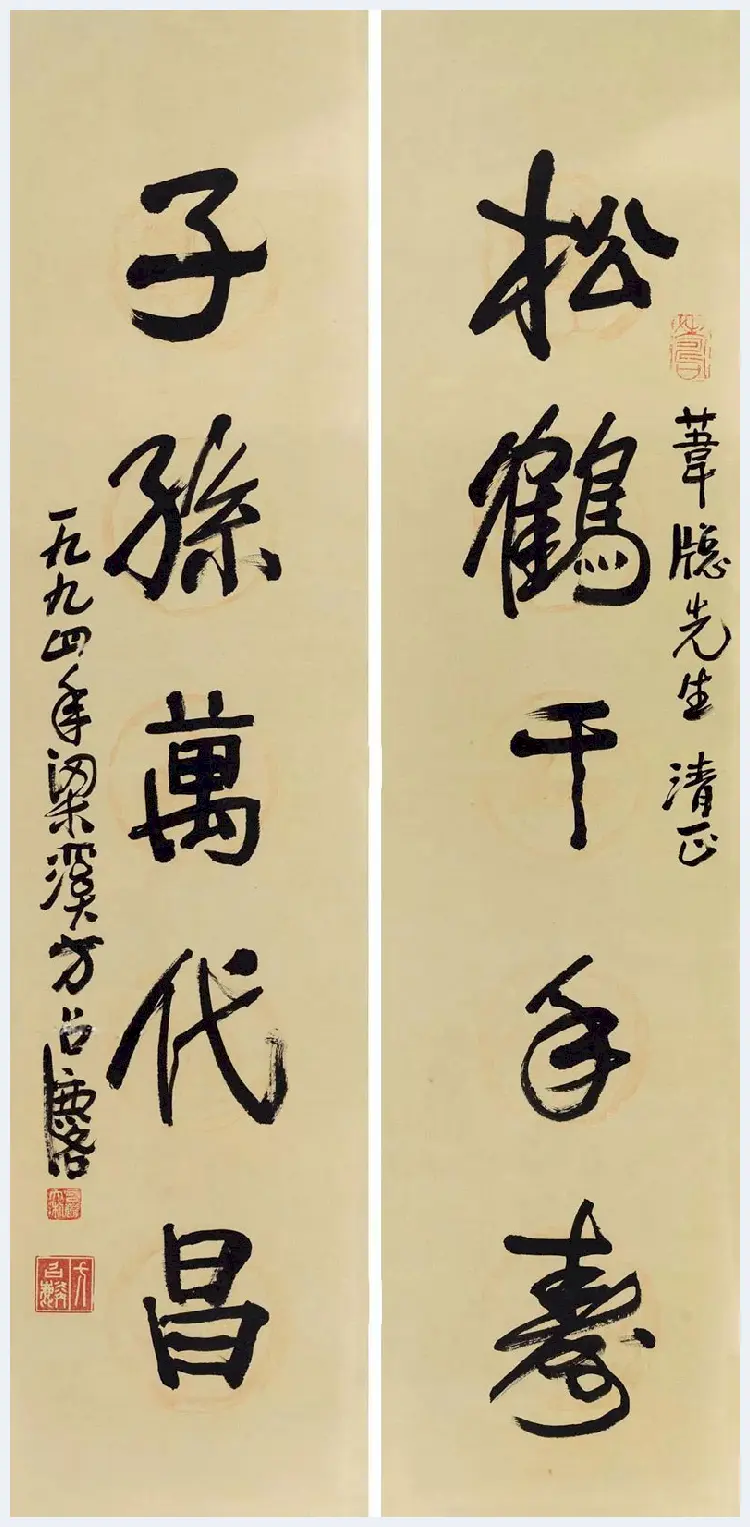 松鶴千年壽
葦牕先生清正
子孫萬代昌
一九九四年梁溪方召麐